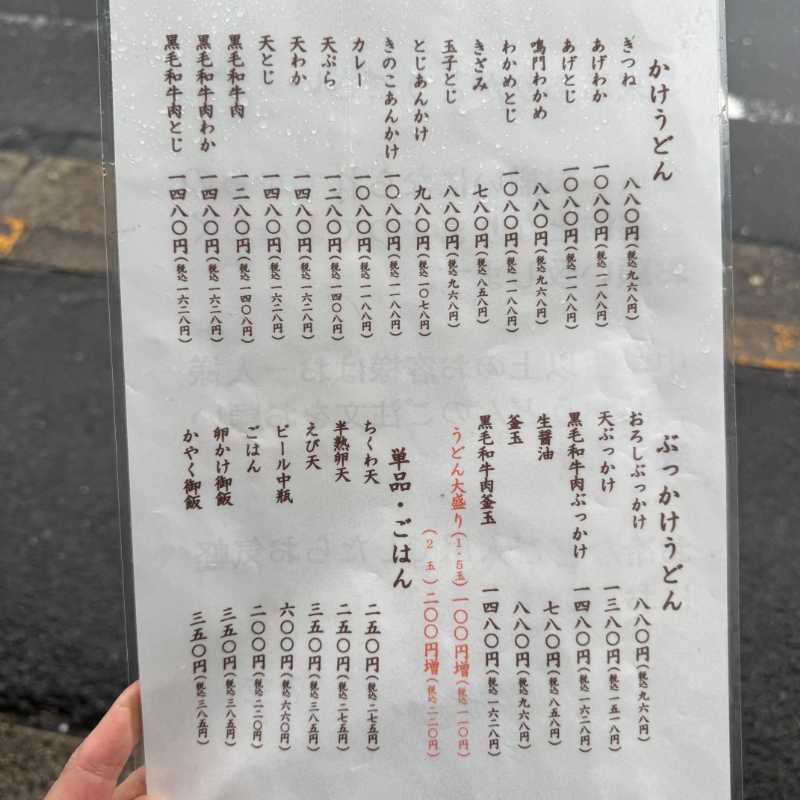 かけうどん
きつね 八八〇円(税込 九六八円)
あげわか 一〇八〇円(税込 一一八八円)
あげとじ 一〇八〇円(税込 一一八八円)
鳴門わかめ 八八〇円(税込 九六八円)
わかめとじ 一〇八〇円(税込 一一八八円)
きざみ 七八〇円(税込 八五八円)
玉子とじ 八八〇円(税込 九六八円)
とじあんかけ 九八〇円(税込 一〇七八円)
きのこあんかけ 一〇八〇円(税込 一一八八円)
カレー 一〇八〇円(税込 一一八八円)
天ぷら 一二八〇円(税込 一四〇八円)
天わか 一四八〇円(税込 一六二八円)
天とじ 一四八〇円(税込 一六二八円)
黒毛和牛肉 一二八〇円(税込 一四〇八円)
黒毛和牛肉わか 一四八〇円(税込 一六二八円)
黒毛和牛肉とじ 一四八〇円(税込 一六二八円)
ぶっかけうどん
おろしぶっかけ 八八〇円(税込 九六八円)
天ぶっかけ 一三八〇円(税込 一五一八円)
黒毛和牛肉ぶっかけ 一四八〇円(税込 一六二八円)
生醬油 七八〇円(税込 八五八円)
釜玉 八八〇円(税込 九六八円)
黒毛和牛肉釜玉 一四八〇円(税込 一六二八円)
うどん大盛り(1.5玉) 一〇〇円増(税込 一一〇円)
(2玉) 二〇〇円増(税込 二二〇円)
単品・ごはん
ちくわ天 二五〇円(税込 二七五円)
半熟卵天 二五〇円(税込 二七五円)
えび天 三五〇円(税込 三八五円)
ビール中瓶 六〇〇円(税込 六六〇円)
ごはん 二〇〇円(税込 二二〇円)
卵かけ御飯 三五〇円(税込 三八五円)
かやく御飯 三五〇円(税込 三八五円)